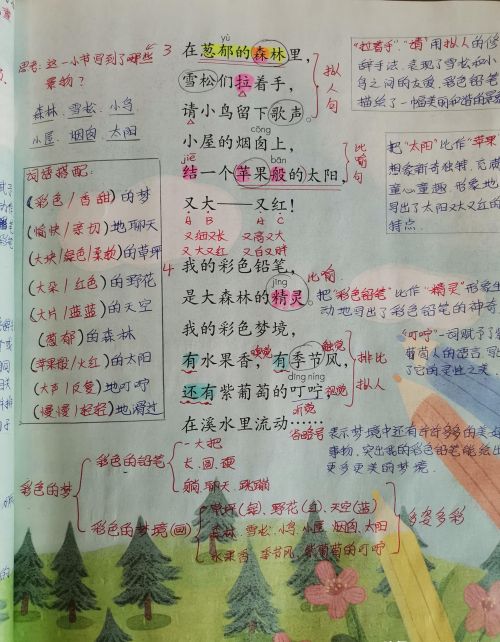 思考：这一小节写到了哪些
景物？
森林、雪松、小鸟
小屋、烟囱、太阳
词语搭配：
(彩色/香甜)的梦
(愉快/亲切)地聊天
(大块/绿色/柔软)的草坪
(大朵/红色)的野花
(大片/蓝蓝)的天空
(葱郁)的森林
(苹果般/火红)的太阳
(大声/反复)地叮咛
(慢慢/轻轻)地滑过
3
yù
在葱郁的森林里，
雪松们拉着手，
请小鸟留下歌声。
拟人句
cōng
小屋的烟囱上，
jié bān
结一个苹果般的太阳，
比喻句
又大——又红！
A B A C
又细又长 又高又大
又大又红 又白又胖
4
我的彩色铅笔，
jīng
是大森林的精灵。
比喻
我的彩色梦境，
有水果香，有季节风，
嗅觉 触觉
dīng níng
还有紫葡萄的叮咛
视觉
听觉
排比
拟人
在溪水里流动……
省略号
"拉着手""请"用拟人的修
辞手法，表现了雪松和小
鸟之间的友爱，彩色铅笔
描绘了一幅美丽和谐的
把"太阳"比作"苹
想象新奇独特，充满
童心童趣，形象地
写出了太阳又大又红的
特点
把"彩色铅笔"比作"精灵"形象生
动地写出了彩色铅笔的神
"叮咛"一词赋予了
葡萄人的语言，
了它的灵性之美
表示梦境中还有许许多多的美
事物，突出我的彩色铅笔能绘出
更多更美的梦境。
彩色的梦
彩色的铅笔
一大把
长、圆、硬
躺、聊天、跳蹦
彩色的梦境(画)
草坪(绿)、野花(红)、天空(蓝)
森林、雪松、小鸟、小屋、烟囱、太阳
水果香、季节风、紫葡萄的叮咛
多姿多彩